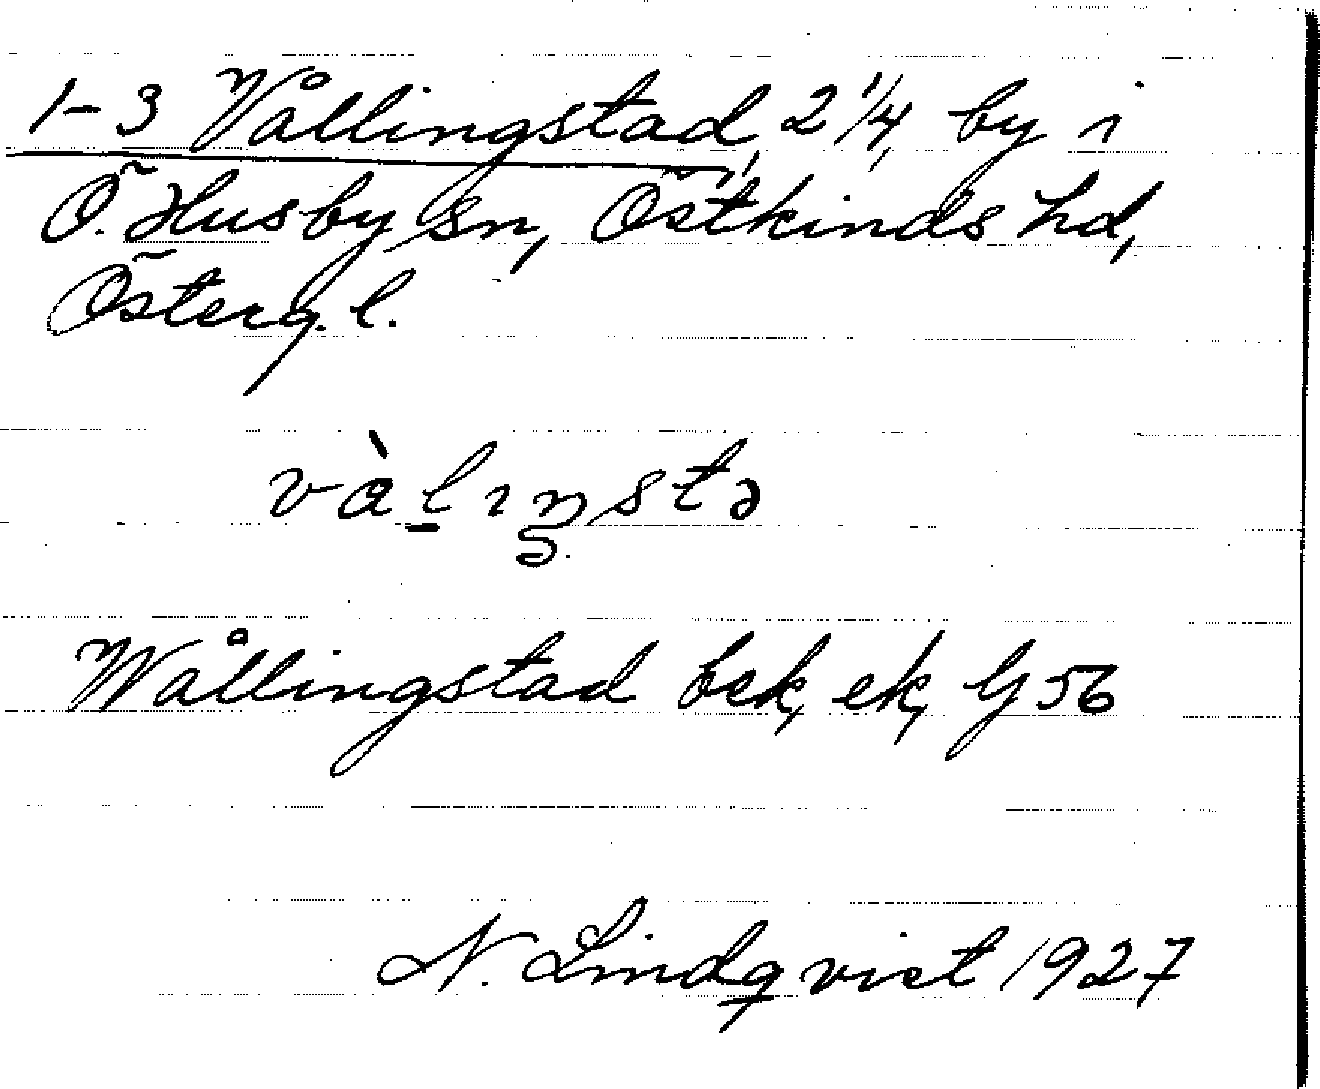 1-3 Vållingstad, 2 1/4, by i
Ö. Husby sn, Östkinds hd,
Österg. l.
Wållingstad bek, ek, G 56
N. Lindqvist 1927